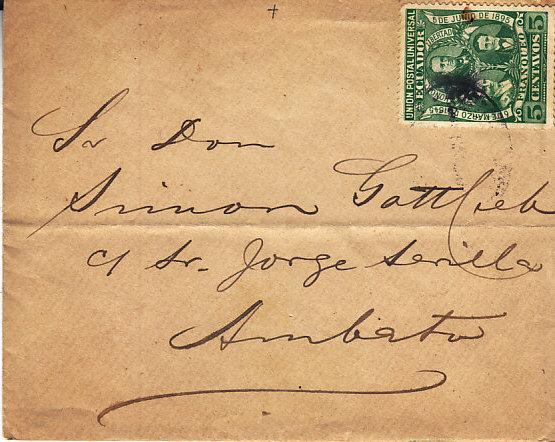 UNION POSTAL UNIVERSAL
ECUADOR
5 DE JUNIO DE 1895
LIBERTAD
6 DE MARZO DE 1845
FRANQUEO
5 CENTAVOS 5
Sr Don
Simon Gottlieb
c/ Sr. Jorge Sevilla
Ambato